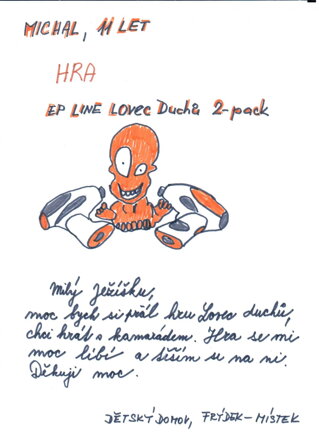 MICHAL, 11 LET
HRA
EP LINE LOVEC DUCHŮ 2-pack
Milý Ježíšku,
moc bych si přál hru Lovec duchů,
chci hrát s kamarádem. Hra se mi
moc líbí a těším se na ni.
Děkuji moc.
DĚTSKÝ DOMOV, FRÝDEK-MÍSTEK